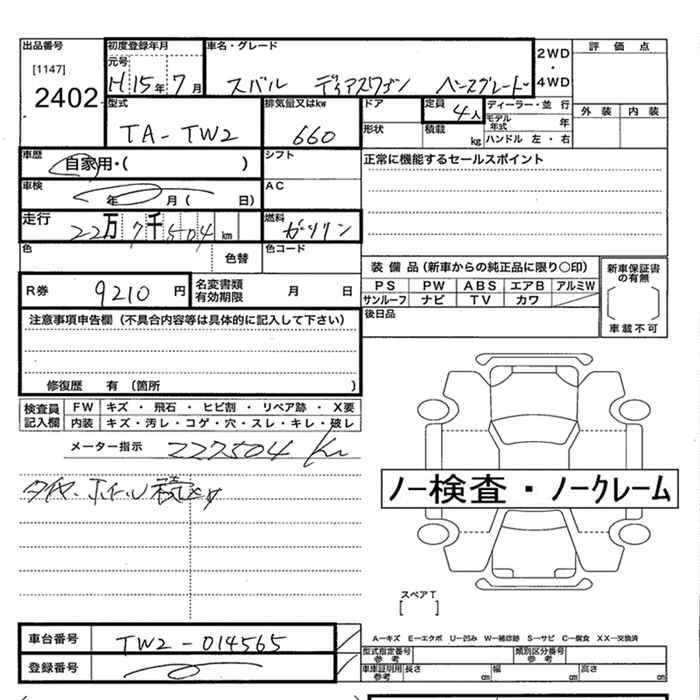 出品番号 初度登録年月 車名・グレード 2WD ・ 4WD 評価点
[1147] 元号
2402 H15年7月 スバル ディアスワゴン ベースグレード 外装 内装
型式 排気量又はkw ドア 定員 4人 ディーラー・並行
TA-TW2 660 形状 積載 kg モデル年式 年
ハンドル 左・右
車歴 自家用・( ) シフト 正常に機能するセールスポイント
車検 年 月( 日) AC
走行 22万7千504km 燃料 ガソリン
色 色替 色コード
装備品(新車からの純正品に限り○印) 新車保証書の有無
R券 9210円 名変書類有効期限 月 日 PS PW ABS エアB アルミW
サンルーフ ナビ TV カワ
注意事項申告欄(不具合内容等は具体的に記入して下さい) 後日品 車載不可
修復歴 有(箇所 )
検査員記入欄 FW キズ・飛石・ヒビ割・リペア跡・X要
内装 キズ・汚レ・コゲ・穴・スレ・キレ・破レ
メーター指示 227504 Km
タイヤ、 積込み
ノー検査・ノークレーム
スペアT
[ ]
車台番号 TW2-014565 A－キズ E－エクボ U－凹み W－補修跡 S－サビ C－腐食 XX－交換済
型式指定番号 参考 類別区分番号 参考
登録番号 車車証明用 参考 長さ cm 幅 cm 高さ cm